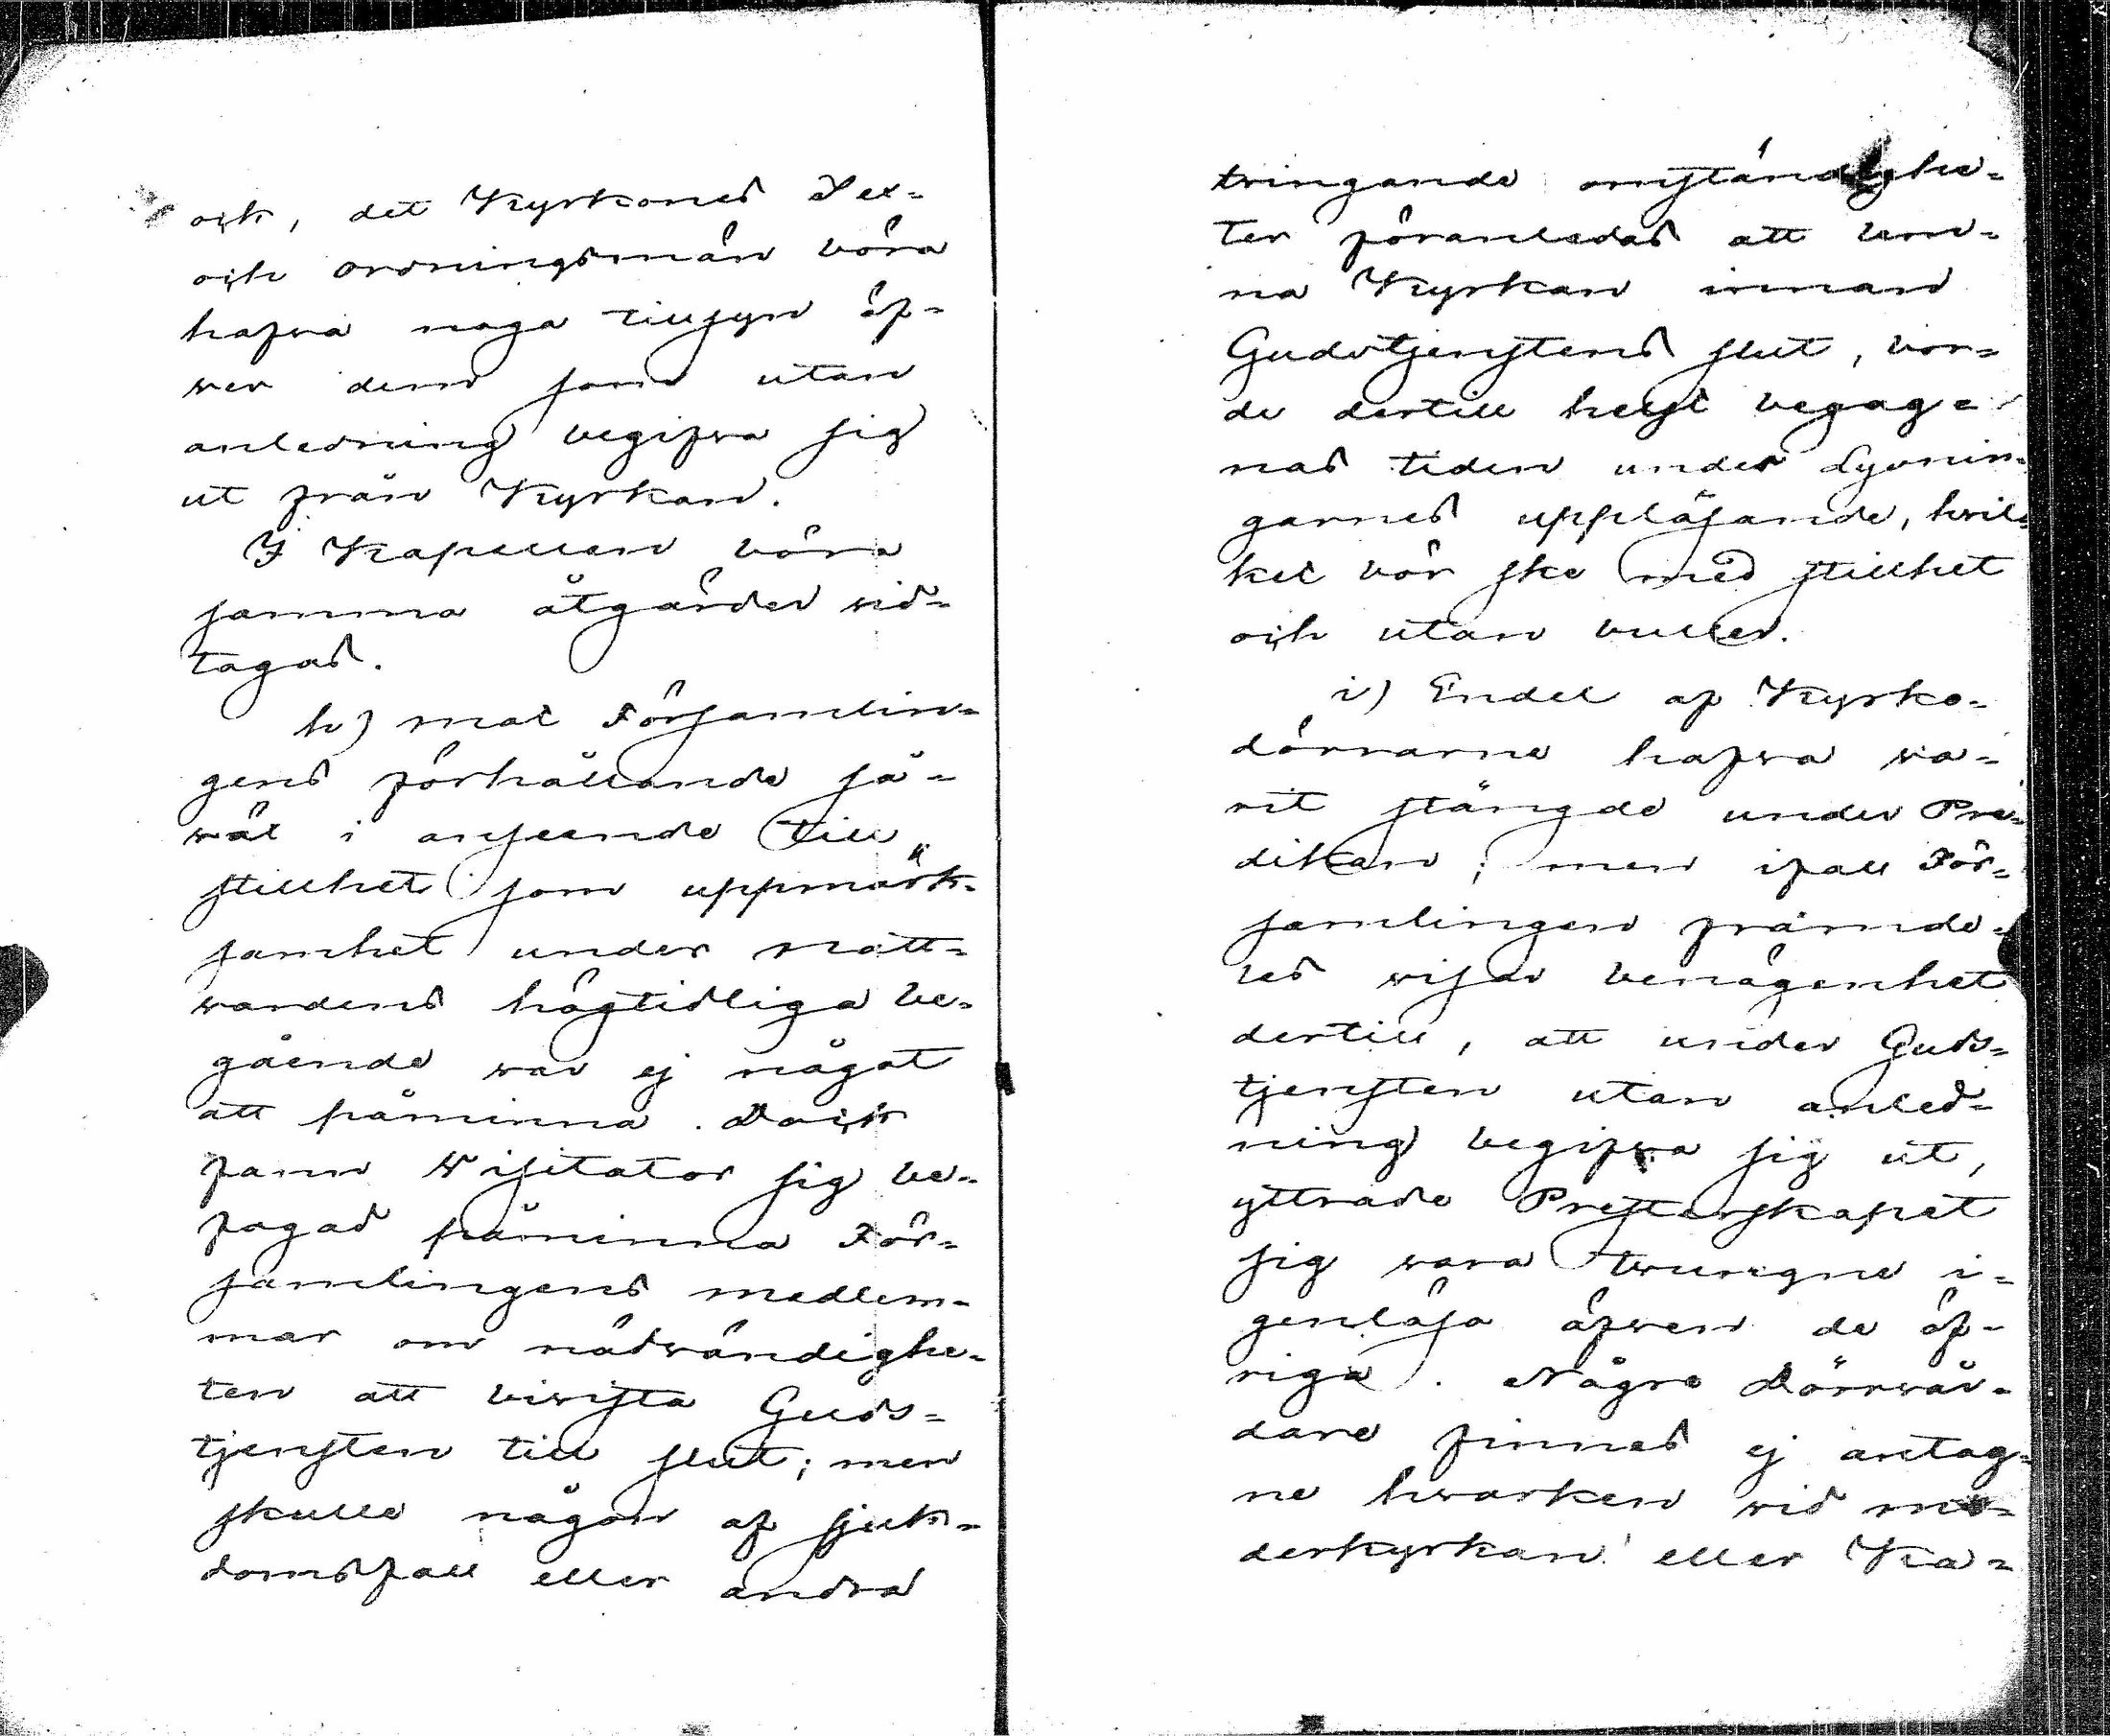 och, det Kyrkones Sex-
och ordningsmän böra
hafwa noga tillsyn öf-
wer dem som utan
anledning begifwa sig
ut från Kyrkan.
I Kapellen böra
samma åtgärder wid-
tagas.
h) mot Församlin-
gens förhållande så-
wäl i anseende till
stillhet som uppmärk-
samhet under natt-
wardens högtidliga be-
gående war ej något
att påminna. Dock
fann Wisitator sig be-
fogad påminna För-
samlingens medlem-
mar om nödwändighe-
ten att biwista Guds-
tjensten till slut; men
skulle någon af sjuk-
domsfall eller andra
tvingande omständighe-
ter föranledas att läm-
na Kyrkan innan
Gudstjenstens slut, bor-
de dertill helst begag-
nas tiden under Lysnin-
garnes uppläsande, hwil-
ket bör ske med stillhet
och utan buller.
i) Endel af Kyrko-
dörrarne hafwa wa-
rit stängde under Pre-
dikan; men ifall För-
samlingen främde-
les wisar benägenhet
dertill, att under Guds-
tjensten utan anled-
ning begifwa sig ut,
yttrade Presterskapet
sig wara twungne i-
genlåsa äfwen de öf-
riga. Någre Dörrwär-
dare finnas ej antag-
ne hwarken wid mo-
derkyrkan eller Ka-